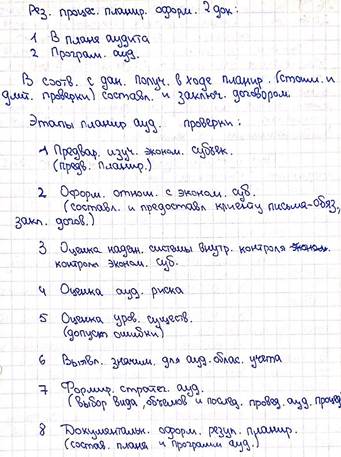 Рез. процес. планир. оформ. 2 док:
1 В плане аудита
2 Програм. ауд.
В соотв. с дан. получ. в ходе планир. (стоим. и
длит. проверки) составл. и заключ. договором
Этапы планир ауд. проверки:
1 Предвар. изуч. эконом. субъек.
(предв. планир.)
2 Оформ. отнош. с эконом. суб.
(составл. и предоставл клиенту письма-обяз,
закл. догов.)
3 Оценка надежн. системы внутр. контроля
контроля эконом. суб.
4 Оценка ауд. риска
5 Оценка уров. существ.
(допуст ошибки)
6 Выявл. значим. для ауд. облас. учета
7 Формир. стратег. ауд.
(выбор вида, объемов и послед. провед. ауд. процед
8 Документальн. оформ. резул. планир.
(состав. плана и программ ауд.)